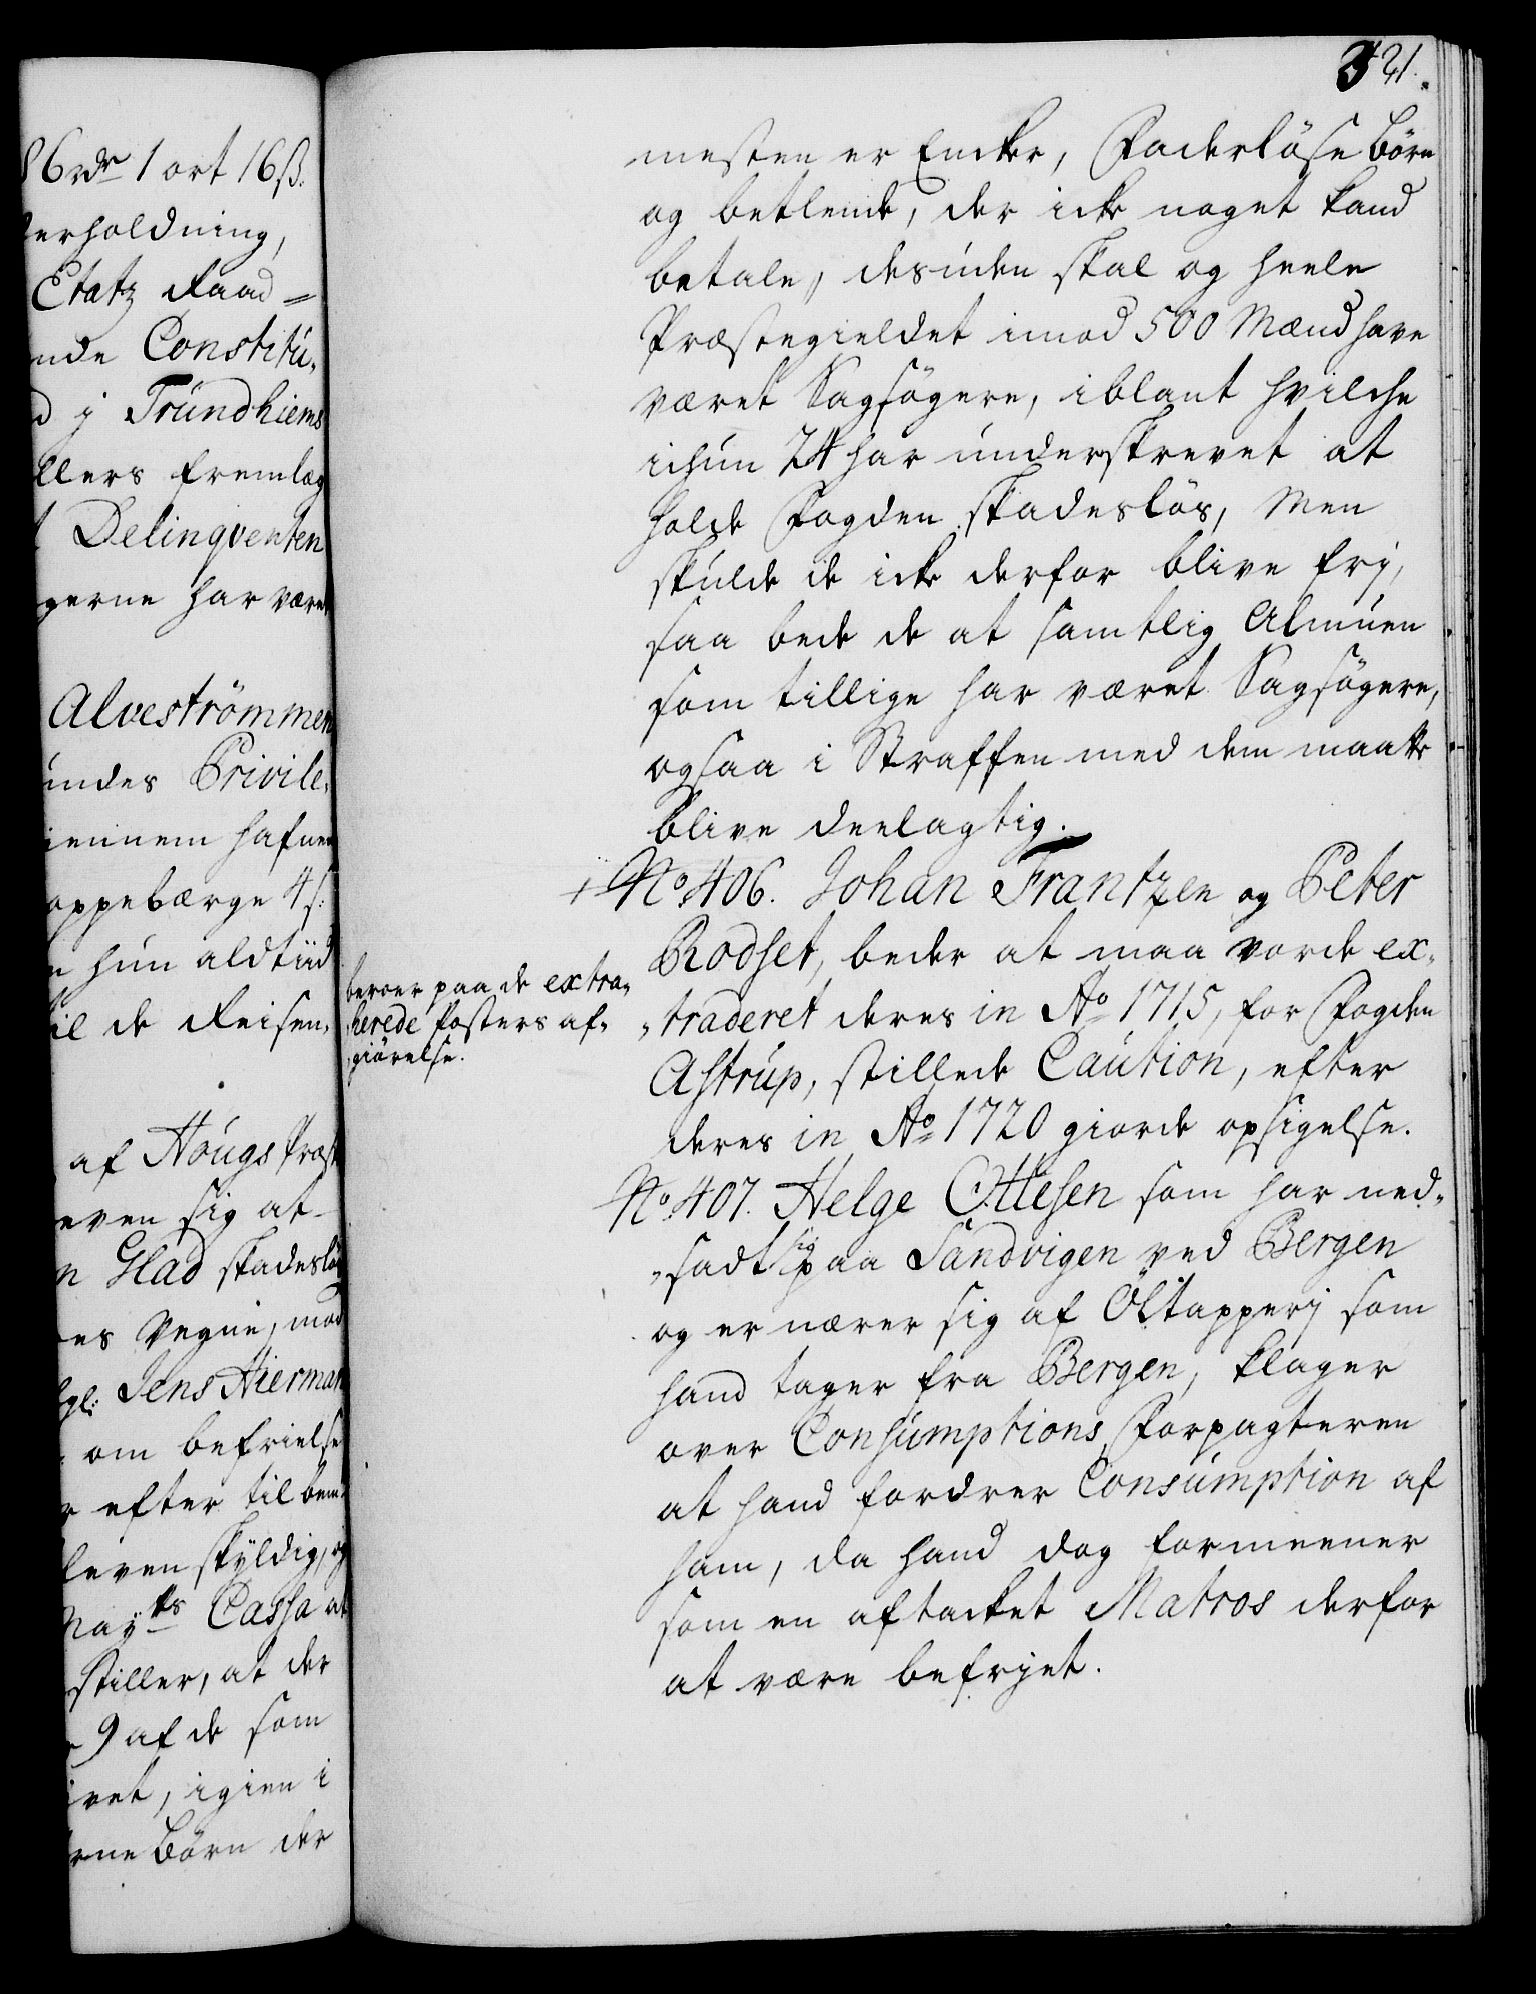 86 rdr 1 ort 16 ß.
erholdning,
Etatz Raad=
nde Constitu-
d j Trundhiems
llers fremlæg
Delinqventen
gerne har være
Alveströmmen
undes Privile-
iennem hafuer
oppebærge 4 s:
n hun aldtiid
til de Reisen-
af Hougs Præst
even sig at
n Glad skadeslös
es Vegne, mod
Sgl: Jens Hierman
om befrielse
efter til bem
leven skyldig, og
May:ts Cassa at
stiller, at der
9 af de som
vet, igien i
rne Börn der
321.
mesten er Encker, Faderlöse Börn
og betlende, der icke noget kand
betale, desuden skal og heele
Præstegieldet imod 500 Mænd have
været Sagsögere, iblant hvilche
ichun 24 har underskrevet at
holde Fogden skadeslös, Men
skulde de icke derfor blive frj,
saa bede de at samtlig Almuen
som tillige har været Sagsögere,
ogsaa i Straffen med dem maatte
blive deelagtig.
+ No. 406. Johan Frantzen og Peter
Rodset, beder at maa vorde ex-
-traderet deres in Ao 1715, for Fogden
Astrup, stillede Caution, efter
deres in Ao 1720 giorde opsigelse.
beroer paa de extra-
herede Posters af-
giörelse.
No. 407. Helge Ottesen som har ned-
-sadt sig paa Sandvigen ved Bergen
og er nærer sig af Öltapperj som
hand tager fra Bergen, klager
over Consumptions Forpagteren
at hand fordrer Consumption af
ham, da hand dog formeener
som en aftacket Matros derfor
at være befrjet.